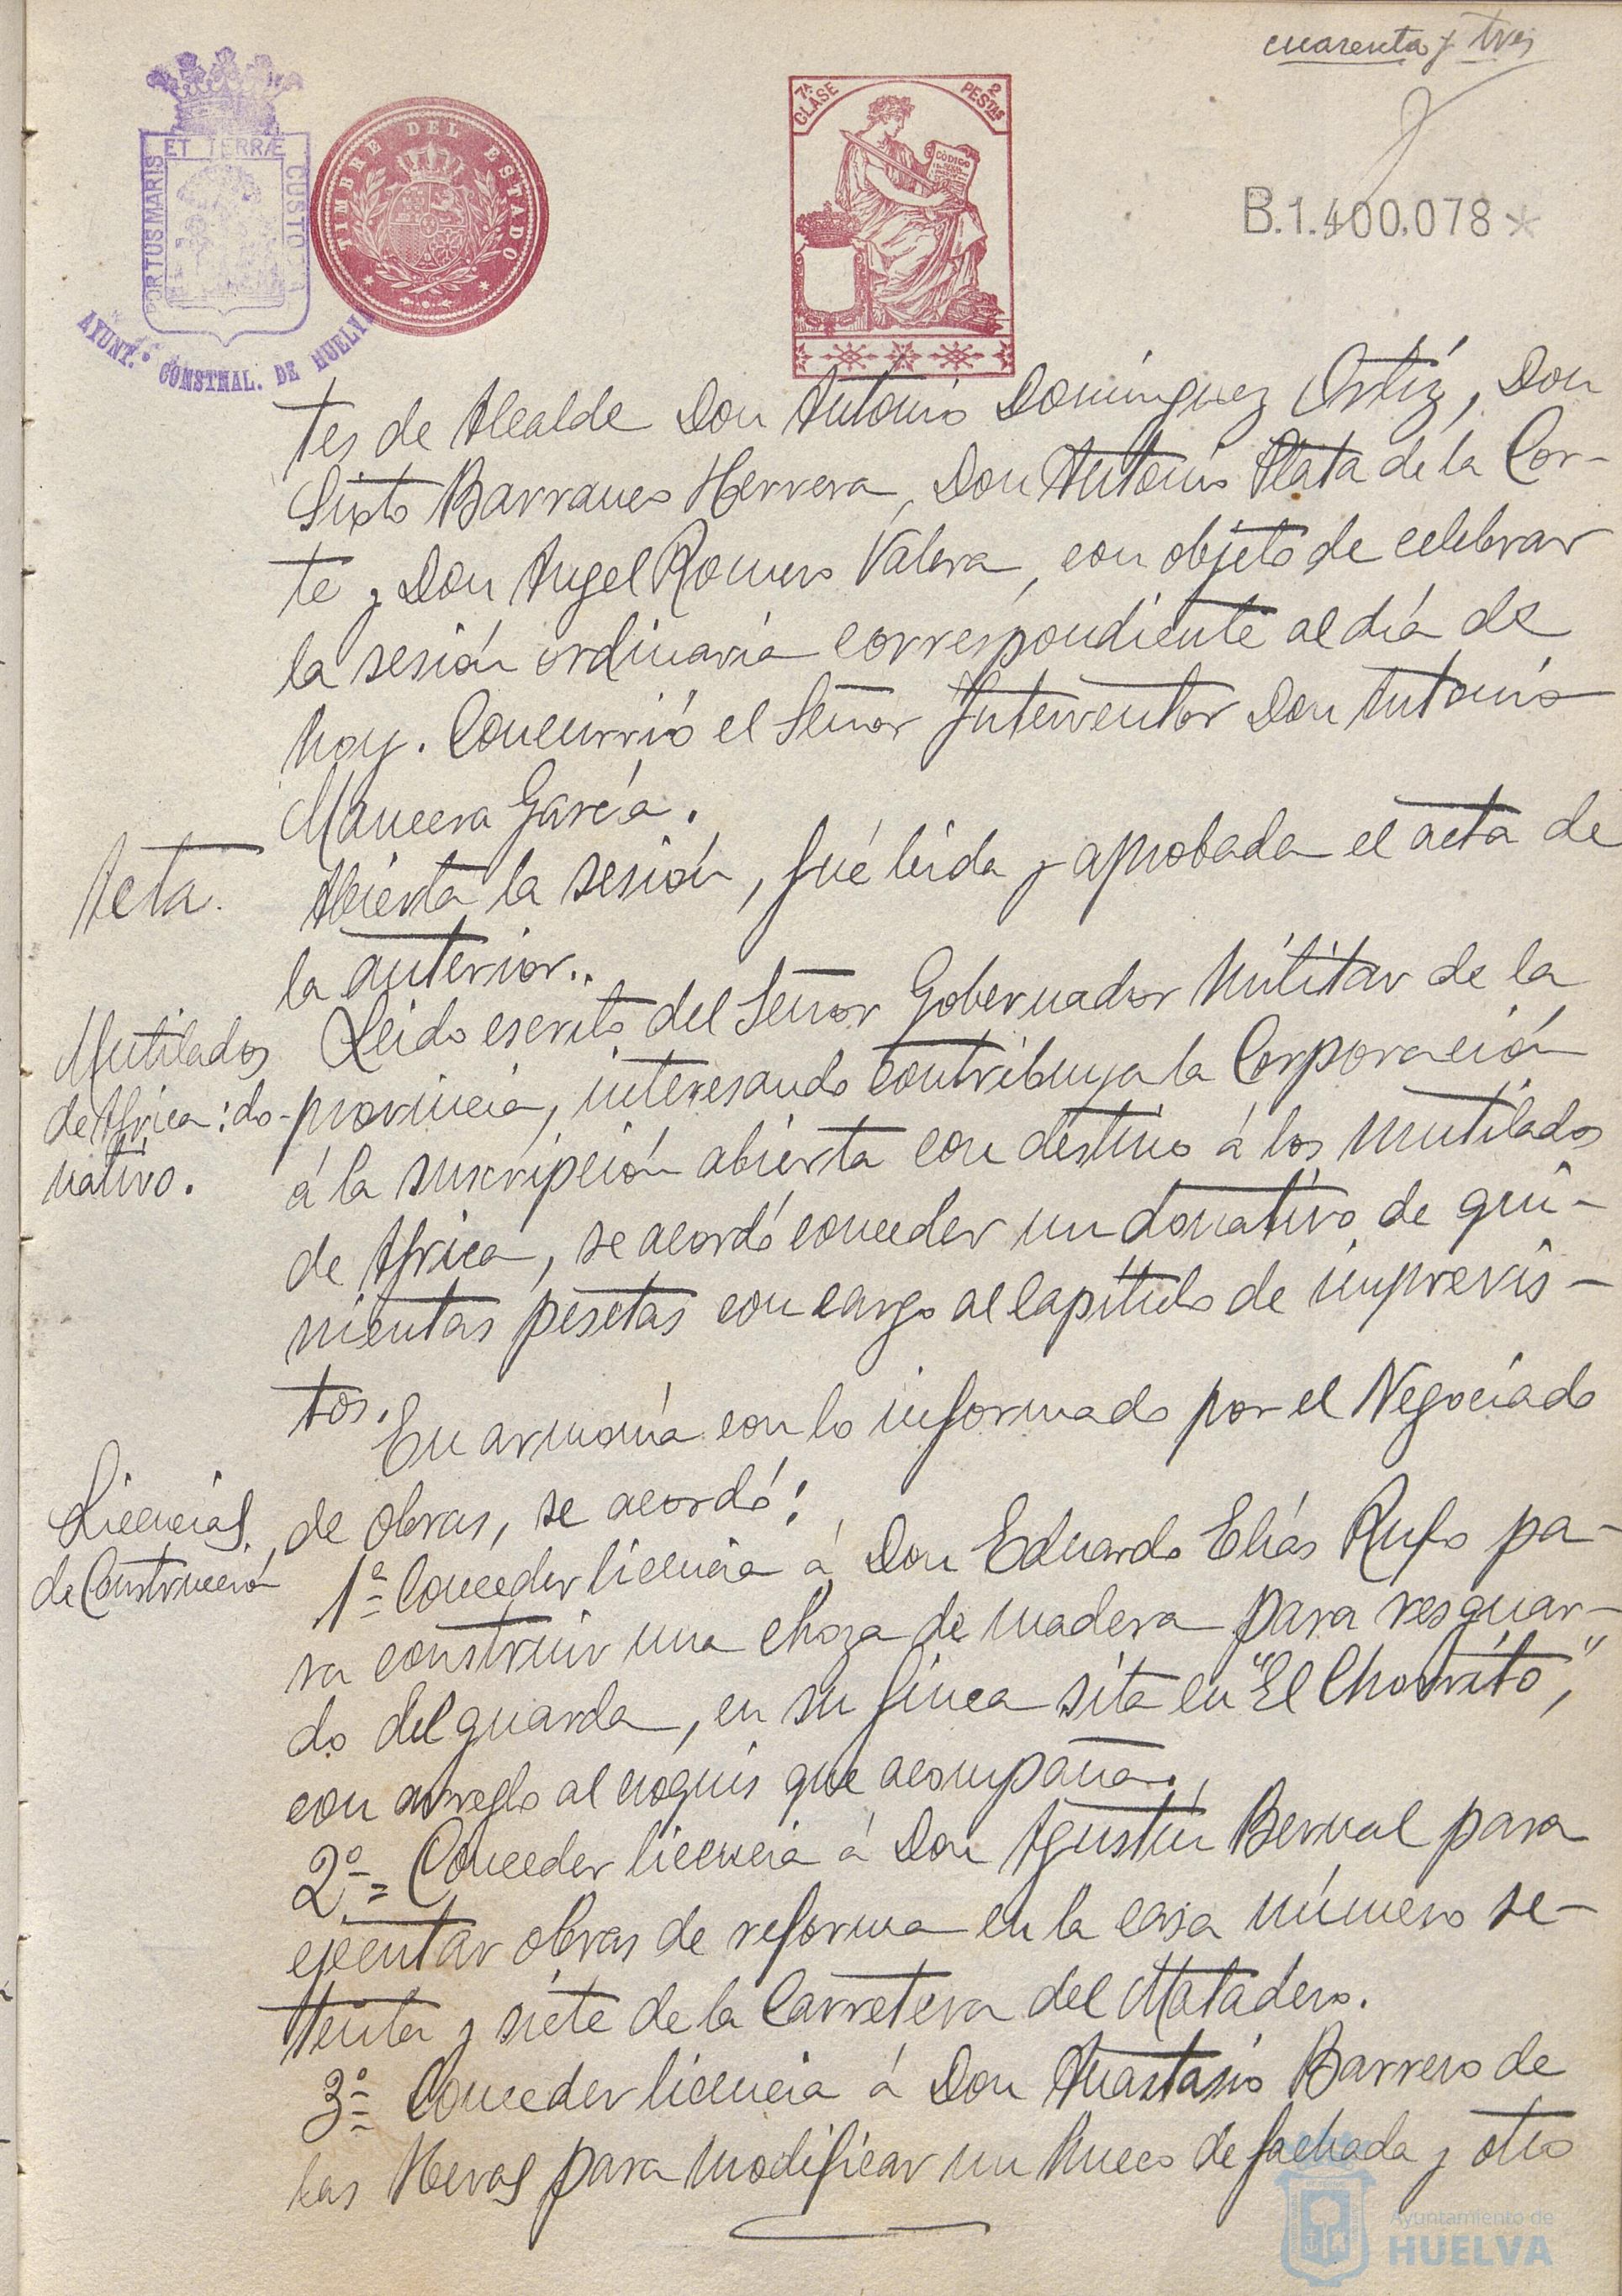 cuarenta y tres
ET TERRÆ
PORTUS MARIS
CUSTODIA
AYUNT.º CONSTNAL. DE HUELVA
TIMBRE DEL ESTADO
7ª CLASE
2 PESTAS
CÓDIGO
B.1.400.078*
tes de Alcalde Don Antonio Domínguez Ortíz, Don
Sixto Barranco Herrera, Don Antonio Plata de la Cor-
te y Don Angel Romero Valera, con objeto de celebrar
la sesión ordinaria correspondiente al día de
hoy. Concurrió el Señor Interventor Don Antonio
Mancera García.
Acta.
Abierta la sesión, fué leida y aprobada el acta de
la anterior..
Mutilados
de Africa: do-
nativo.
Leido escrito del Señor Gobernador Militar de la
provincia, interesando contribuya la Corporación
á la suscripción abierta con destino á los mutilados
de Africa, se acordó conceder un donativo de qui-
nientas pesetas con cargo al capítulo de imprevis-
tos.
En armonía con lo informado por el Negociado
Licencias
de Construcción
de obras, se acordó:
1º Conceder licencia á Don Eduardo Elías Rufo pa-
ra construir una choza de madera para resguar-
do del guarda, en su finca sita en "El Chorrito",
con arreglo al cróquis que acompaña.
2º= Conceder licencia á Don Agustín Bernal para
ejecutar obras de reforma en la casa número se-
tenta y siete de la Carretera del Matadero.
3º Conceder licencia á Don Anastasio Barrero de
las Heras para modificar un hueco de fachada y otro
Ayuntamiento de
HUELVA